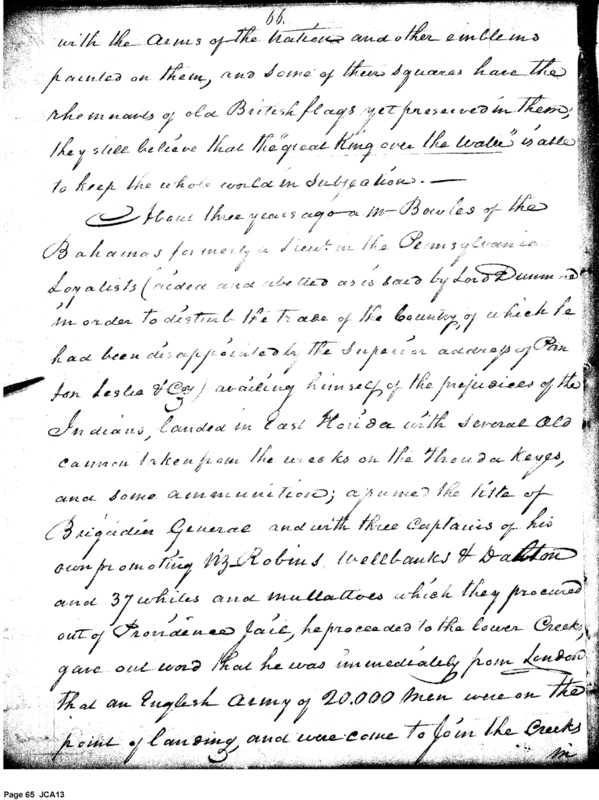 66.
with the Arms of the Nation and other emblems
painted on them, and some of their squares have the
rhemnants of old British flags yet preserved in them,
they still believe that the "great King over the Water" is able
to keep the whole world in Subjeation. —
About three years ago a Mr Bowles of the
Bahamas formerly a Lieut. in the Pennsylvania
Loyalists (aided and abetted as is said by Lord Dunmore
in order to disturb the trade of the Country, of which he
had been disappointed by the Superior address of Pan
ton Leslie & Coy) availing himself of the prejudices of the
Indians, landed in East Florida with several old
cannon taken from the wrecks on the Florida Keyes,
and some ammunition; assumed the title of
Brigadier General and with three Captains of his
own promoting Viz Robins, Wellbanks & Dalton
and 37 whites and mullattoes which they procured
out of Providence Jail, he proceeded to the lower Creeks,
gave out word that he was immediately from London
that an English Army of 20.000 Men were on the
point of landing, and were come to Join the Creeks
in
Page 65 JCA13